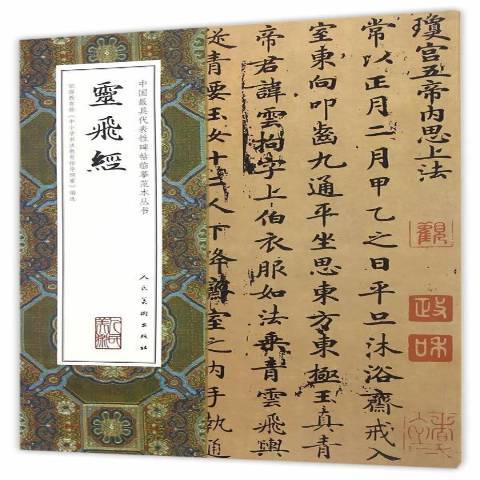 瓊宮五帝内思上法
常以正月二月甲乙之日平旦沐浴齋戒入
室東向叩齒九通平坐思東方東極玉真青
帝君諱雲拘字上伯衣服如法乘青雲輿
從青要玉女十二人下降齋室之内手執通
觀
政和
中国最具代表性碑帖临摹范本丛书
靈飛經
依据教育部《中小学书法教育指导纲要》编选
人民美術出版社